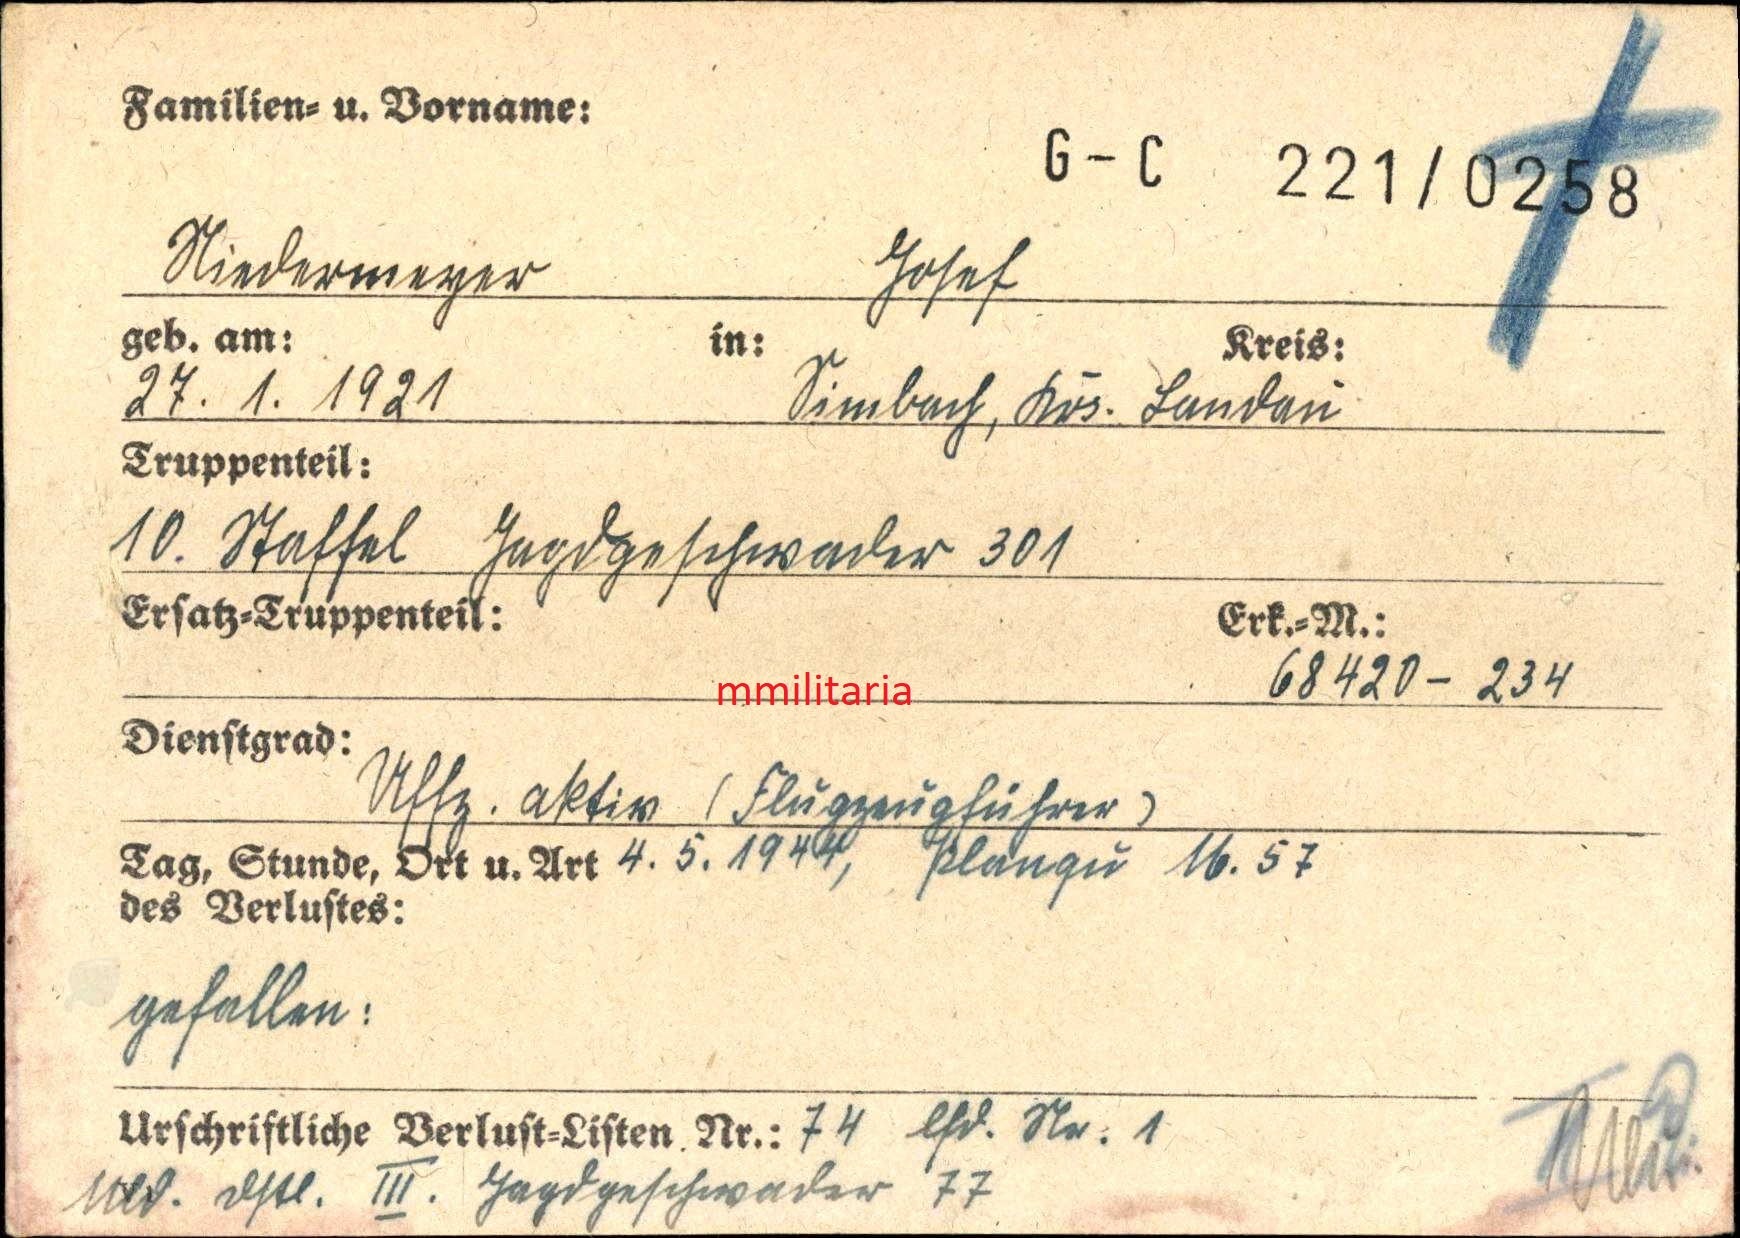 Familien- u. Vorname:
G-C 221/0258
Niedermeyer Josef
geb. am: in: Kreis:
27. 1. 1921 Simbach, Krs. Landau
Truppenteil:
10. Staffel Jagdgeschwader 301
Ersatz-Truppenteil: Erk.-M.:
68420- 234
mmilitaria
Dienstgrad:
Uffz. aktiv (Flugzeugführer)
Tag, Stunde, Ort u. Art 4. 5. 1944, 16. 57
des Verlustes:
gefallen:
Urschriftliche Verlust-Listen Nr.: 74 lfd. Nr. 1
Mld. dstl. III. Jagdgeschwader 77